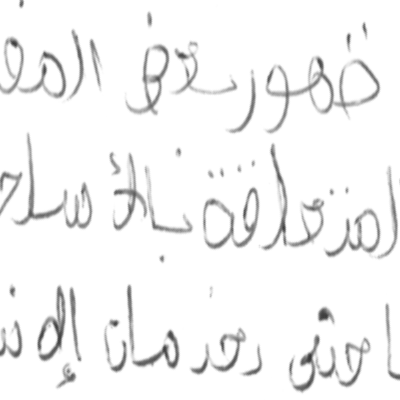 ظهور بعض المف
المتعلقة بالأسلح
ما حتى بخدمات الإنت